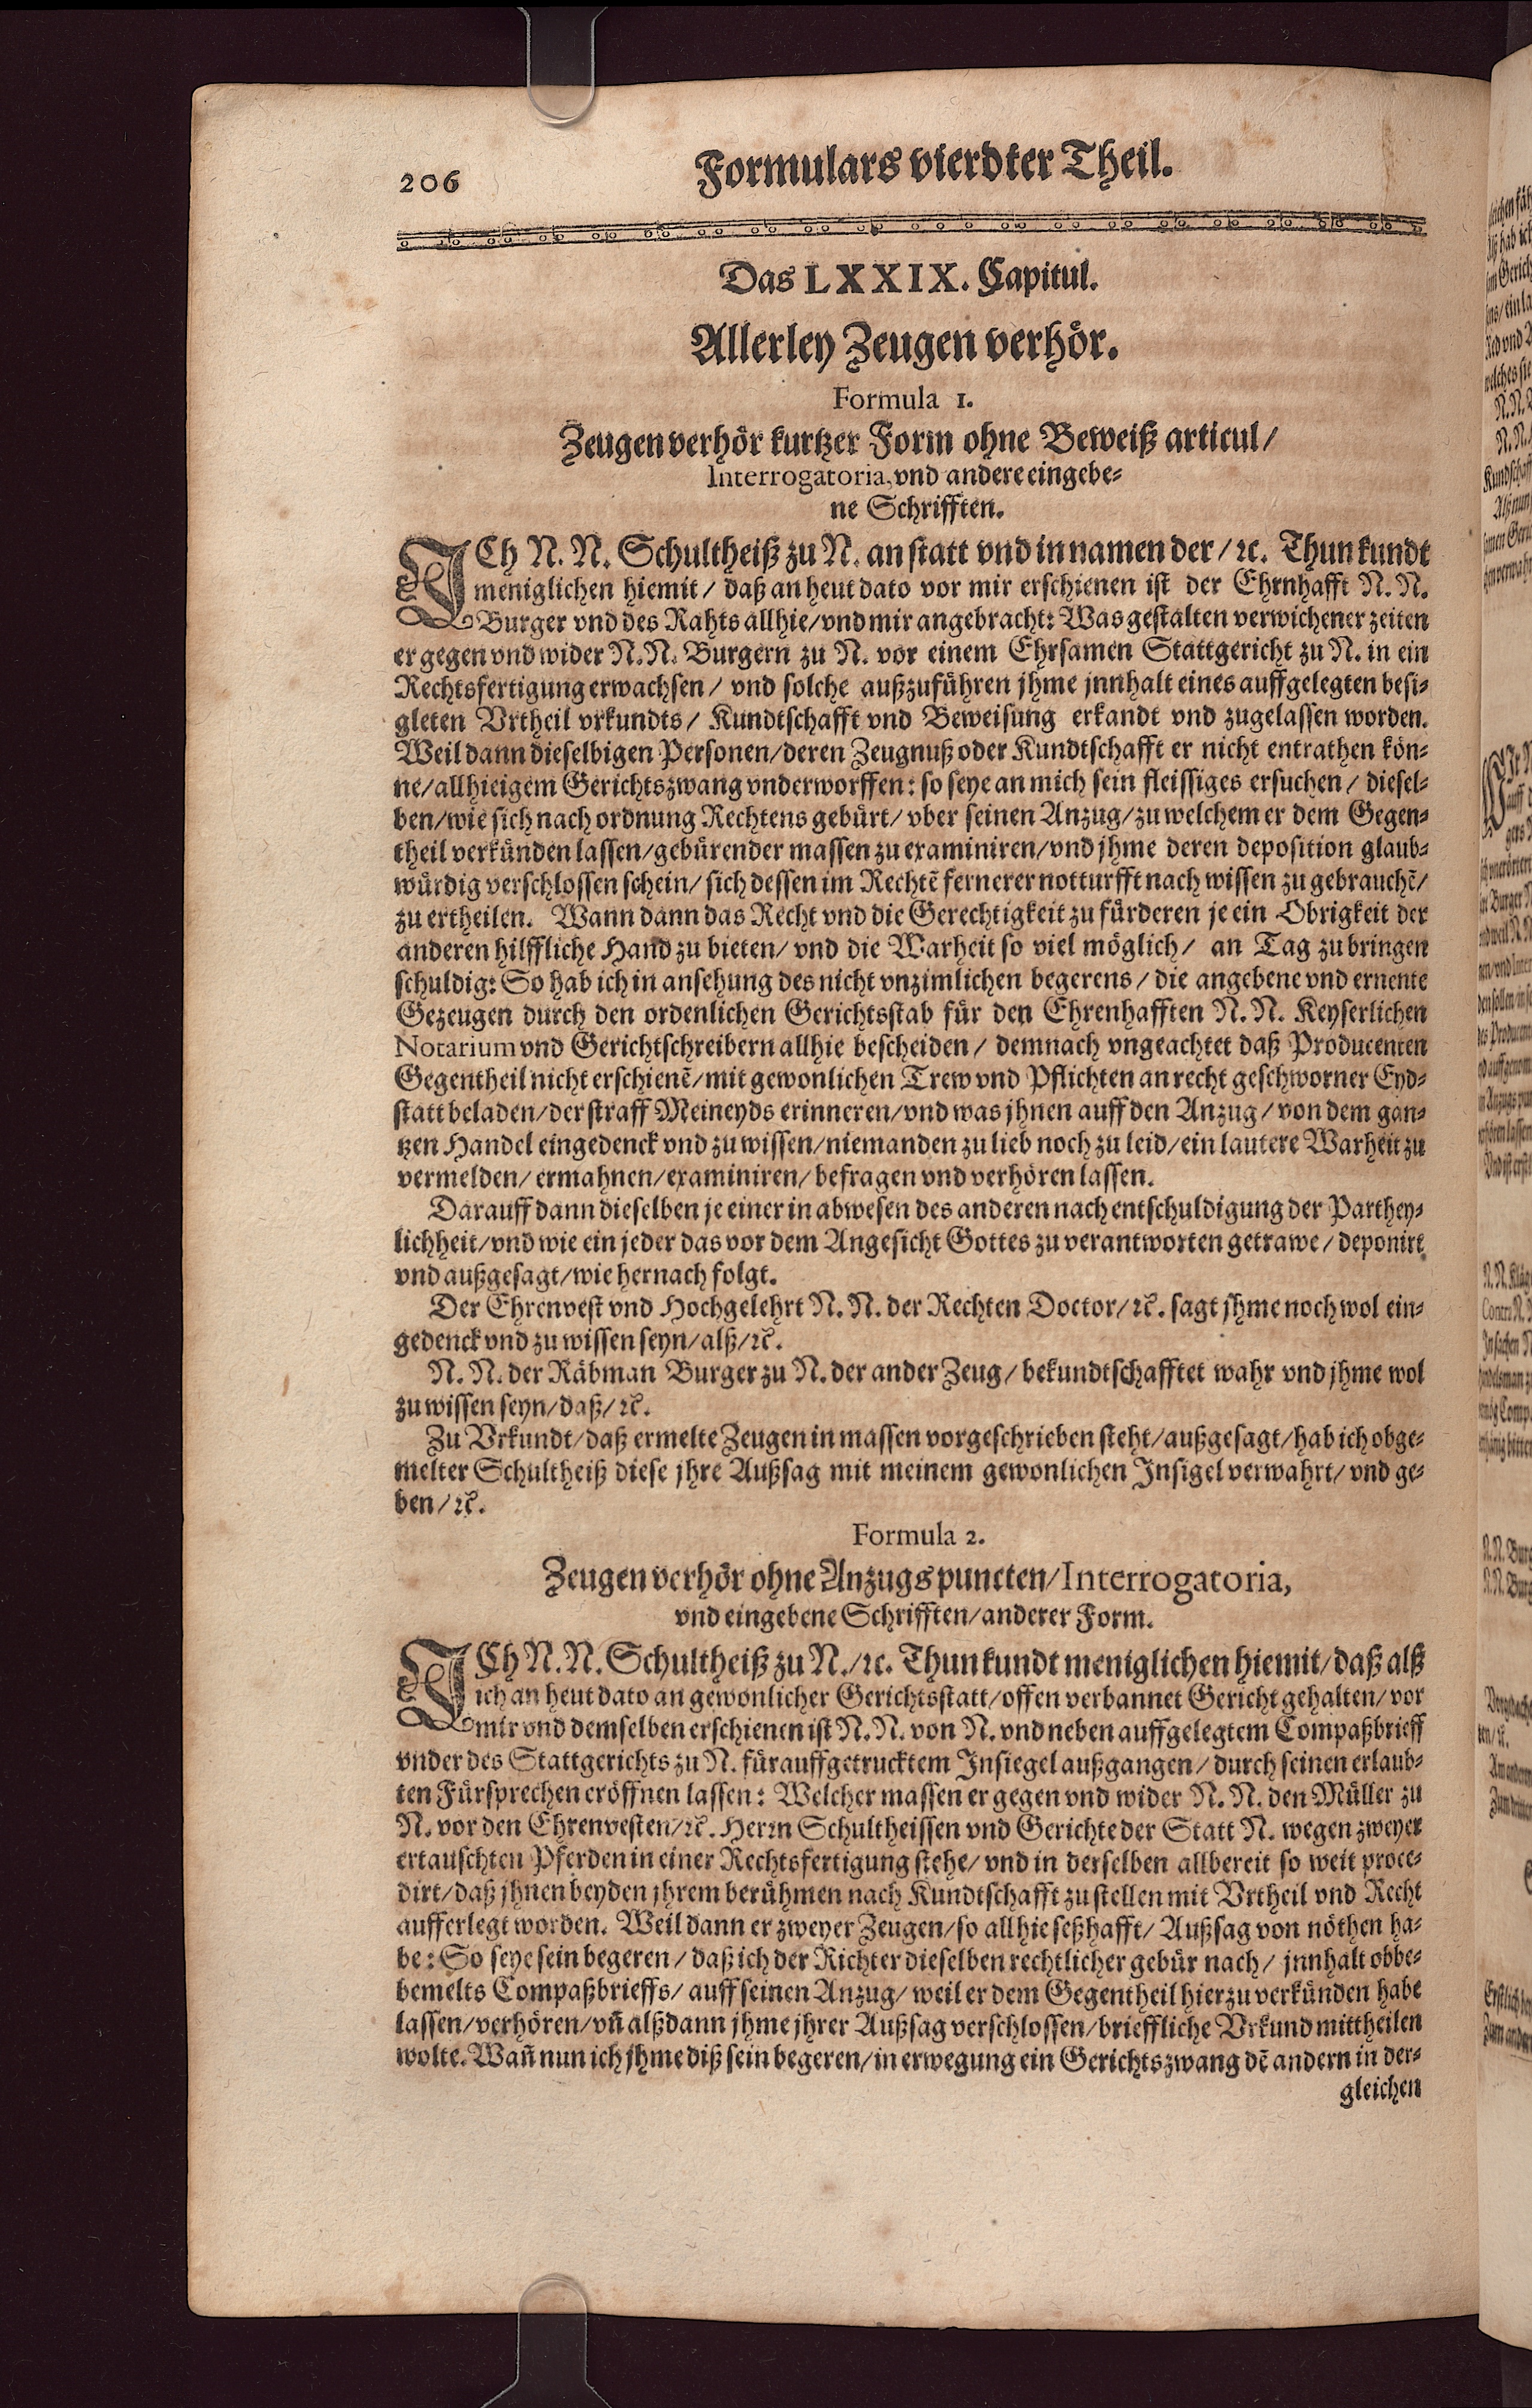 206
Formulars vierdter Theil.
Das LXXIX. Capitul.
Allerley Zeugen verhör.
Formula 1.
Zeugen verhör kurtzer Form ohne Beweiß articul/
Interrogatoria, vnd andere eingebe-
ne Schrifften.
ICh N. N. Schultheiß zu N. an statt vnd in namen der/ ꝛc. Thun kundt
meniglichen hiemit/ daß an heut dato vor mir erschienen ist der Ehrnhafft N. N.
Burger vnd des Rahts allhie/ vnd mir angebracht: Was gestalten verwichener zeiten
er gegen vnd wider N. N. Burgern zu N. vor einem Ehrsamen Stattgericht zu N. in ein
Rechtsfertigung erwachsen/ vnd solche außzuführen jhme jnnhalt eines auffgelegten besi-
gleten Vrtheil vrkundts/ Kundtschafft vnd Beweisung erkandt vnd zugelassen worden.
Weil dann dieselbigen Personen/ deren Zeugnuß oder Kundtschafft er nicht entrathen kön-
ne/ allhieigem Gerichtszwang vnderworffen: so seye an mich sein fleissiges ersuchen/ diesel-
ben/ wie sich nach ordnung Rechtens gebürt/ vber seinen Anzug/ zu welchem er dem Gegen-
theil verkünden lassen/ gebürender massen zu examiniren/ vnd jhme deren deposition glaub-
würdig verschlossen schein/ sich dessen im Rechtẽ fernerer notturfft nach wissen zu gebrauchẽ/
zu ertheilen. Wann dann das Recht vnd die Gerechtigkeit zu fürderen je ein Obrigkeit der
anderen hilffliche Hand zu bieten/ vnd die Warheit so viel möglich/ an Tag zu bringen
schuldig: So hab ich in ansehung des nicht vnzimlichen begerens/ die angebene vnd ernente
Gezeugen durch den ordenlichen Gerichtsstab für den Ehrenhafften N. N. Keyserlichen
Notarium vnd Gerichtschreibern allhie bescheiden/ demnach vngeachtet daß Producenten
Gegentheil nicht erschienẽ/ mit gewonlichen Trew vnd Pflichten an recht geschworner Eyd-
statt beladen/ der straff Meineyds erinneren/ vnd was jhnen auff den Anzug/ von dem gan-
tzen Handel eingedenck vnd zu wissen/ niemanden zu lieb noch zu leid/ ein lautere Warheit zu
vermelden/ ermahnen/ examiniren/ befragen vnd verhören lassen.
Darauff dann dieselben je einer in abwesen des anderen nach entschuldigung der Parthey-
lichheit/ vnd wie ein jeder das vor dem Angesicht Gottes zu verantworten getrawe/ deponirt
vnd außgesagt/ wie hernach folgt.
Der Ehrenvest vnd Hochgelehrt N. N. der Rechten Doctor/ ꝛc. sagt jhme noch wol ein-
gedenck vnd zu wissen seyn/ alß/ ꝛc.
N. N. der Räbman Burger zu N. der ander Zeug/ bekundtschafftet wahr vnd jhme wol
zu wissen seyn/ daß/ ꝛc.
Zu Vrkundt/ daß ermelte Zeugen in massen vorgeschrieben steht/ außgesagt/ hab ich obge-
melter Schultheiß diese jhre Außsag mit meinem gewonlichen Insigel verwahrt/ vnd ge-
ben/ ꝛc.
Formula 2.
Zeugen verhör ohne Anzugs puncten/ Interrogatoria,
vnd eingebene Schrifften/ anderer Form.
ICh N. N. Schultheiß zu N./ ꝛc. Thun kundt meniglichen hiemit/ daß alß
ich an heut dato an gewonlicher Gerichtsstatt/ offen verbannet Gericht gehalten/ vor
mir vnd demselben erschienen ist N. N. von N. vnd neben auffgelegtem Compaßbrieff
vnder des Stattgerichts zu N. fürauffgetrucktem Insiegel außgangen/ durch seinen erlaub-
ten Fürsprechen eröffnen lassen: Welcher massen er gegen vnd wider N. N. den Müller zu
N. vor den Ehrenvesten/ ꝛc. Herrn Schultheissen vnd Gerichte der Statt N. wegen zweyer
ertauschten Pferden in einer Rechtsfertigung stehe/ vnd in derselben allbereit so weit proce-
dirt/ daß jhnen beyden jhrem berühmen nach Kundtschafft zu stellen mit Vrtheil vnd Recht
aufferlegt worden. Weil dann er zweyer Zeugen/ so allhie seßhafft/ Außsag von nöthen ha-
be: So seye sein begeren/ daß ich der Richter dieselben rechtlicher gebür nach/ jnnhalt obbe-
bemelts Compaßbrieffs/ auff seinen Anzug/ weil er dem Gegentheil hierzu verkünden habe
lassen/ verhören/ vñ alßdann jhme jhrer Außsag verschlossen/ brieffliche Vrkund mittheilen
wolte. Wañ nun ich jhme diß sein begeren/ in erwegung ein Gerichtszwang dẽ andern in der-
gleichen